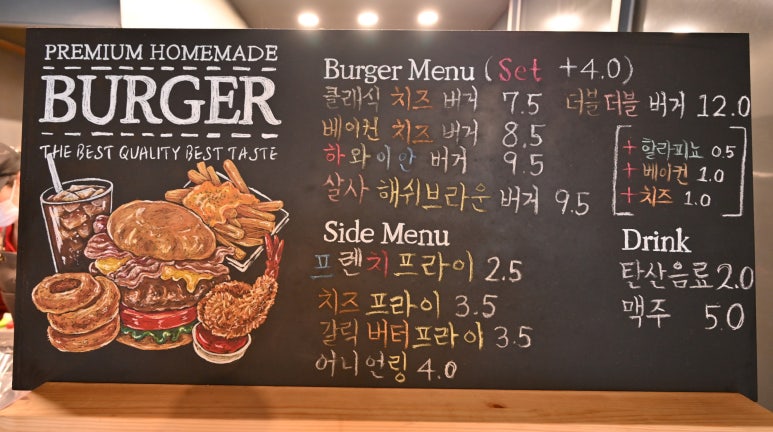 PREMIUM HOMEMADE
BURGER
THE BEST QUALITY BEST TASTE
Burger Menu (Set +4.0)
클래식 치즈 버거 7.5
베이컨 치즈 버거 8.5
하와이안 버거 9.5
살사 해쉬브라운 버거 9.5
더블더블 버거 12.0
+ 할라피뇨 0.5
+ 베이컨 1.0
+ 치즈 1.0
Side Menu
프렌치프라이 2.5
치즈프라이 3.5
갈릭버터프라이 3.5
어니언링 4.0
Drink
탄산음료 2.0
맥주 5.0